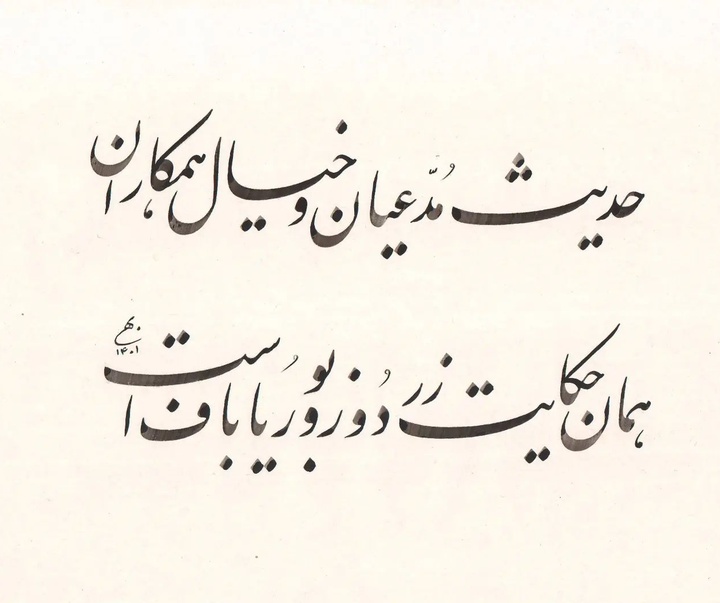 حدیث مُدّعیان و خیال همکاران
همان حکایت زردُوز و بُوریاباف است
۱۴۰۱